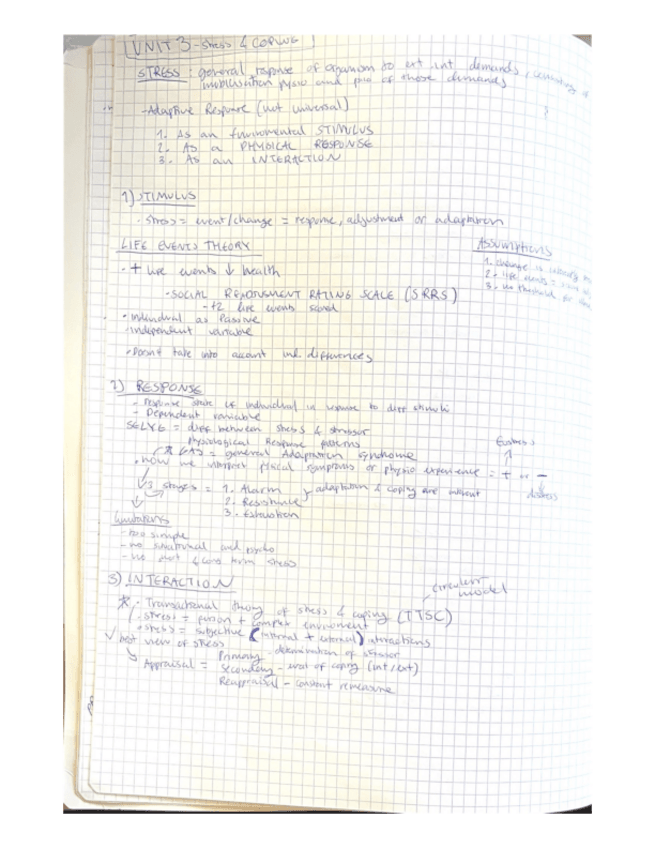 UNIT 3 - Stress & COPING
STRESS: general response of organism to ext. int demands, consisting of
mobilisation fysio and of those demands
- Adaptive Response (not universal)
1. As an Enviromental STIMULUS
2. As a PHYSICAL RESPONSE
3. As an INTERACTION
1) STIMULUS
- Stress = event/change = response, adjustment or adaptation
LIFE EVENTS THEORY
Assumptions
1. change is
2. life events =
3. no threshold for
- + life events ↓ health
- SOCIAL READJUSMENT RATING SCALE (SRRS)
life events
- individual as Passive
- independent variable
- Doesnt take into acount ind. differences
2) RESPONSE
- response state of individual in response to diff stimuli
- Dependent variable
SELYE = diff between stress & stressor
Physiological Response patterns
* GAS = general Adaptation syndrome
Eustress
- how we interpret fisical symptoms or physio experience = + or -
distress
3 stages = 1. Alarm
adaptation & coping are
2. Resistance
3. Exhaustion
Limitations
- too simple
- no situational and
- short & long term stress
3) INTERACTION
circular model
* - Transactional theory of stress & coping (TTSC)
- stress = person + complex enviroment
- stress = subjective (internal + external) interactions
✓ best view of stress
Appraisal = Primary - determination of stressor
Secondary - of coping (int/ext)
Reappraisal - constant